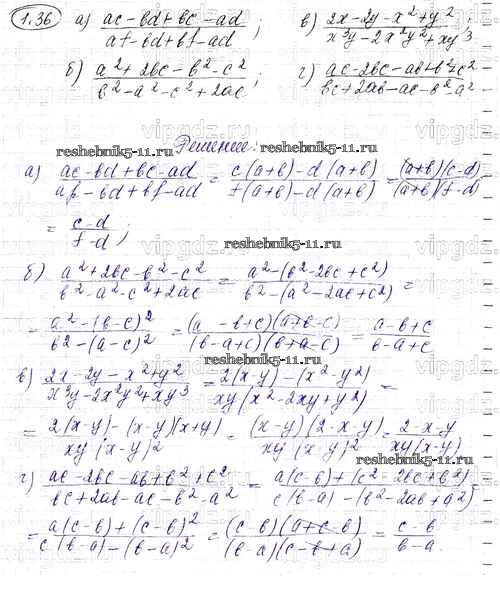 1.36 а) (ac - bd + bc - ad)/(af - bd + bf - ad); в) (2x - 2y - x² + y²)/(x³y - 2x²y² + xy³)
б) (a² + 2bc - b² - c²)/(b² - a² - c² + 2ac); г) (ac - 2bc - ab + b² + c²)/(bc + 2ab - ac - b² - a²)
Решение:
reshebnik5-11.ru reshebnik5-11.ru
а) (ac - bd + bc - ad)/(af - bd + bf - ad) = (c(a+b) - d(a+b))/(f(a+b) - d(a+b)) = ((a+b)(c-d))/((a+b)(f-d))
= (c-d)/(f-d);
б) (a² + 2bc - b² - c²)/(b² - a² - c² + 2ac) = (a² - (b² - 2bc + c²))/(b² - (a² - 2ac + c²)) =
= (a² - (b-c)²)/(b² - (a-c)²) = ((a - b + c)(a + b - c))/((b - a + c)(b + a - c)) = (a - b + c)/(b - a + c)
reshebnik5-11.ru
в) (2x - 2y - x² + y²)/(x³y - 2x²y² + xy³) = (2(x-y) - (x² - y²))/(xy(x² - 2xy + y²)) =
= (2(x-y) - (x-y)(x+y))/(xy(x-y)²) = ((x-y)(2-x-y))/(xy(x-y)²) = (2-x-y)/(xy(x-y))
reshebnik5-11.ru
г) (ac - 2bc - ab + b² + c²)/(bc + 2ab - ac - b² - a²) = (a(c-b) + (c² - 2bc + b²))/(c(b-a) - (b² - 2ab + a²))
= (a(c-b) + (c-b)²)/(c(b-a) - (b-a)²) = ((c-b)(a+c-b))/((b-a)(c-b+a)) = (c-b)/(b-a).
reshebnik5-11.ru